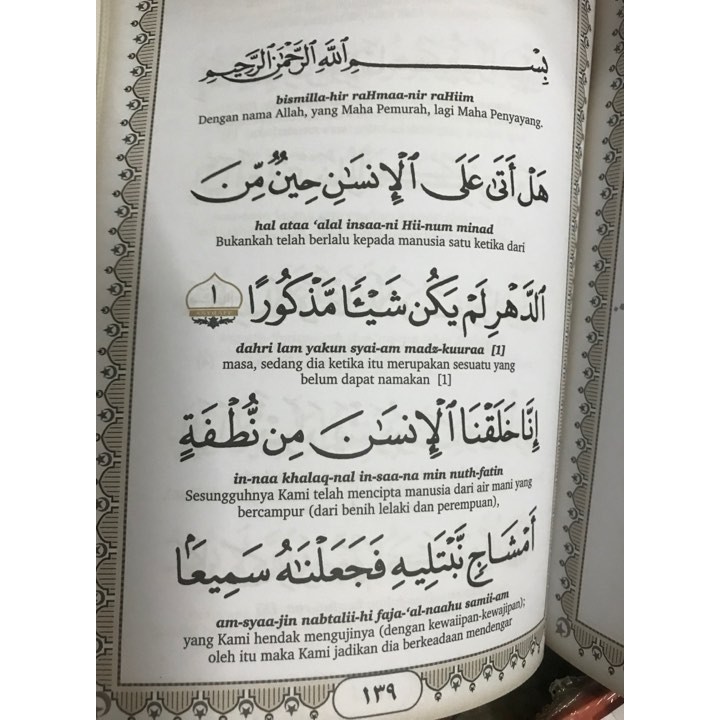 بِسْمِ اللَّهِ الرَّحْمَٰنِ الرَّحِيمِ
bismilla-hir raHmaa-nir raHiim
Dengan nama Allah, yang Maha Pemurah, lagi Maha Penyayang.
هَلْ أَتَىٰ عَلَى ٱلْإِنسَٰنِ حِينٌ مِّنَ
hal ataa ‘alal insaa-ni Hii-num minad
Bukankah telah berlalu kepada manusia satu ketika dari
ٱلدَّهْرِ لَمْ يَكُن شَيْـًٔا مَّذْكُورًا ١
dahri lam yakun syai-am madz-kuuraa [1]
masa, sedang dia ketika itu merupakan sesuatu yang
belum dapat namakan [1]
إِنَّا خَلَقْنَا ٱلْإِنسَٰنَ مِن نُّطْفَةٍ
in-naa khalaq-nal in-saa-na min nuth-fatin
Sesungguhnya Kami telah mencipta manusia dari air mani yang
bercampur (dari benih lelaki dan perempuan),
أَمْشَاجٍ نَّبْتَلِيهِ فَجَعَلْنَٰهُ سَمِيعًۢا
am-syaa-jin nabtalii-hi faja-‘al-naahu samii-am
yang Kami hendak mengujinya (dengan kewaiipan-kewajipan);
oleh itu maka Kami jadikan dia berkeadaan mendengar
١٣٩